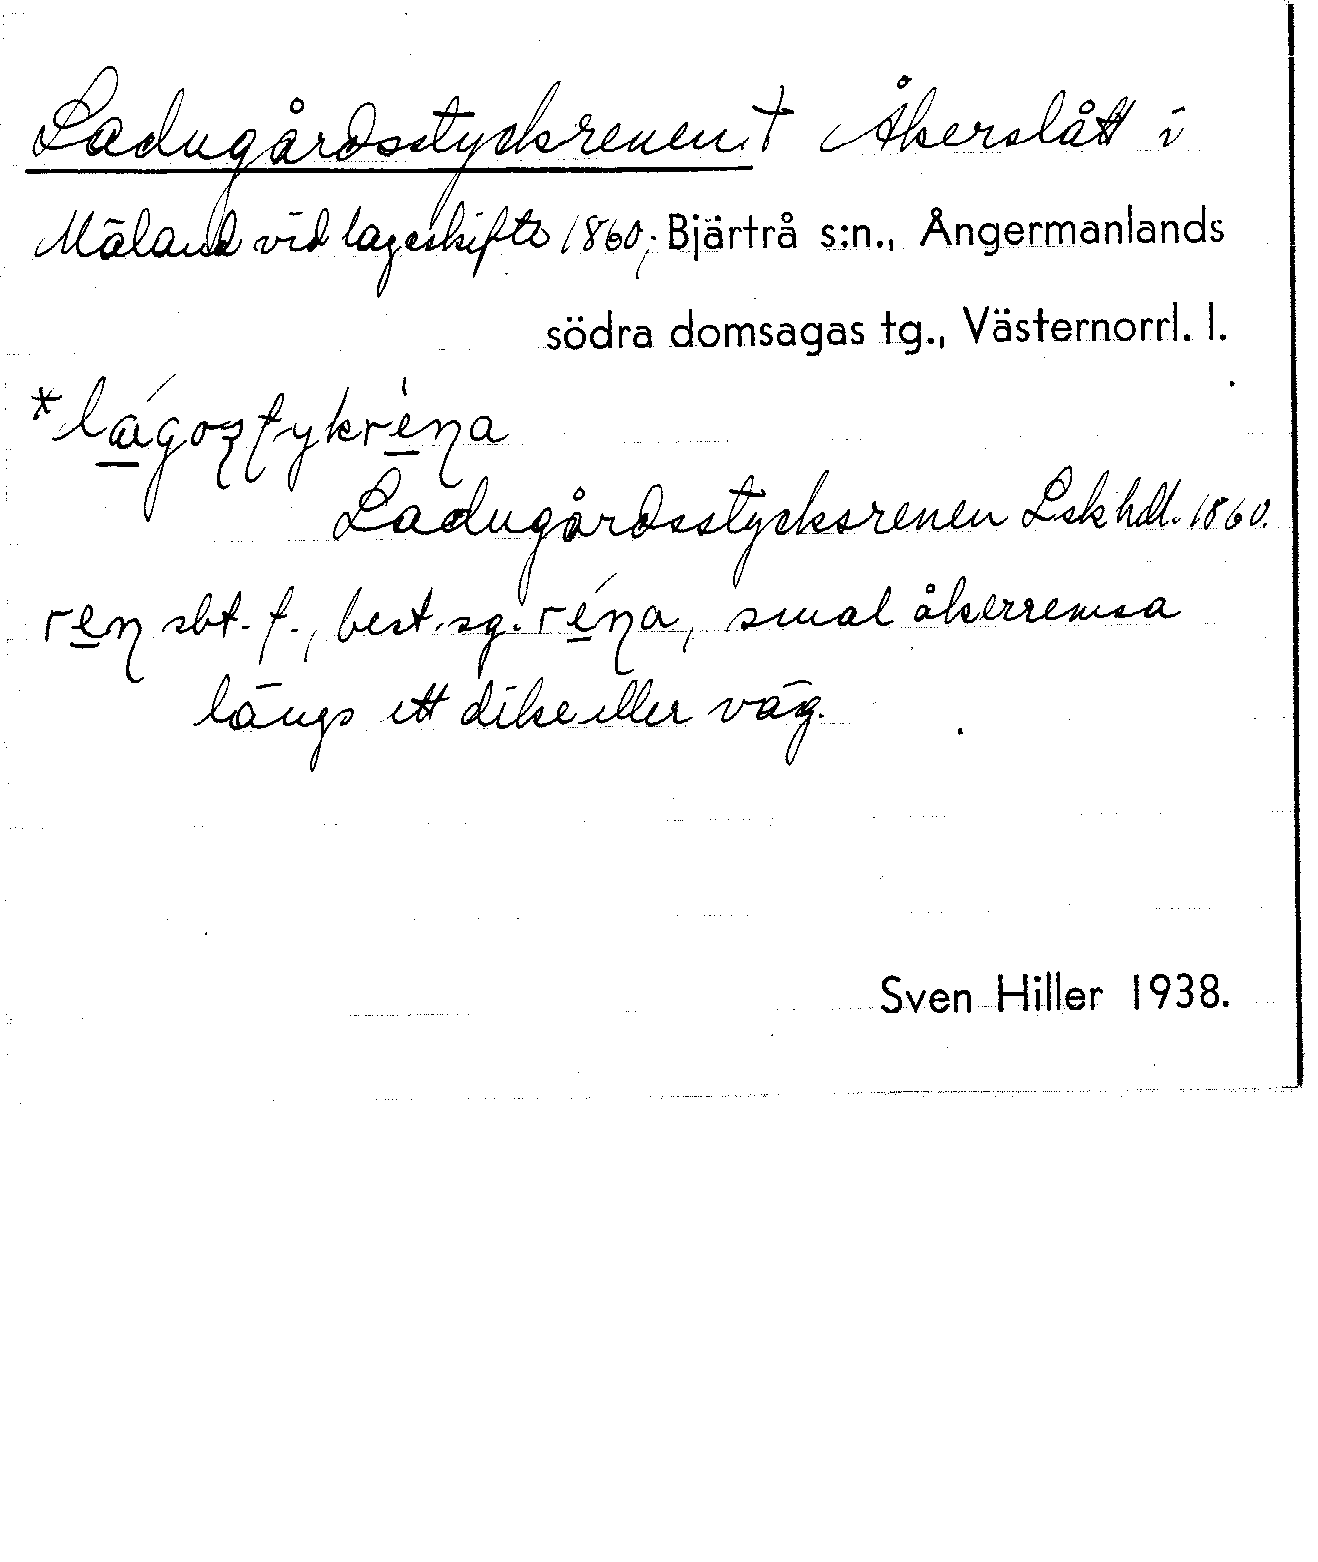 Ladugårdsstycksrenen. † Åkerslått i
Mäland vid lageskifte 1860; Bjärtrå s:n., Ångermanlands
södra domsagas tg., Västernorrl. l.
Ladugårdsstycksrenen Lskhdl. 1860.
ren sbt. f., best. sg. réna, smal åkerremsa
längs ett dike eller väg.
Sven Hiller 1938.